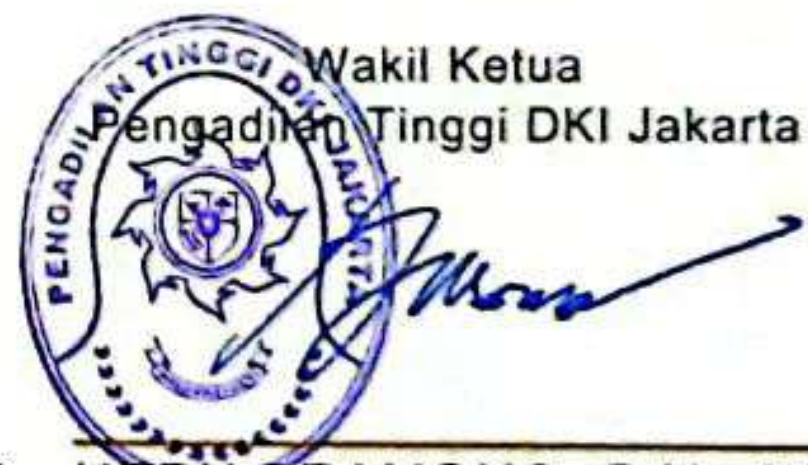 Wakil Ketua
Pengadilan Tinggi DKI Jakarta
PENGADILAN TINGGI DKI JAKARTA